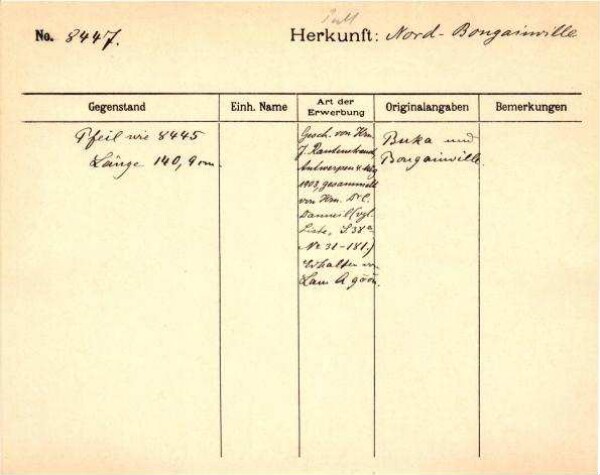 No. 8447. Herkunft: Nord-Bougainville
Gegenstand
Einh. Name
Art der
Erwerbung
Originalangaben
Bemerkungen
Pfeil wie 8445
Länge 140,9 cm.
Gesch. von Hrn.
J. Rautenstrauch,
Antwerpen
1903, gesammelt
von Hrn. Dr. C.
Danneil (vgl.
Liste, S. 38a
No 31-181.)
Erhalten von
Lam A göön.
Buka und
Bougainville.